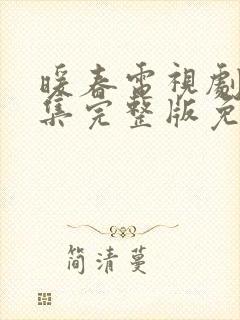 暖春電視劇
集完整版免
簡清蔓